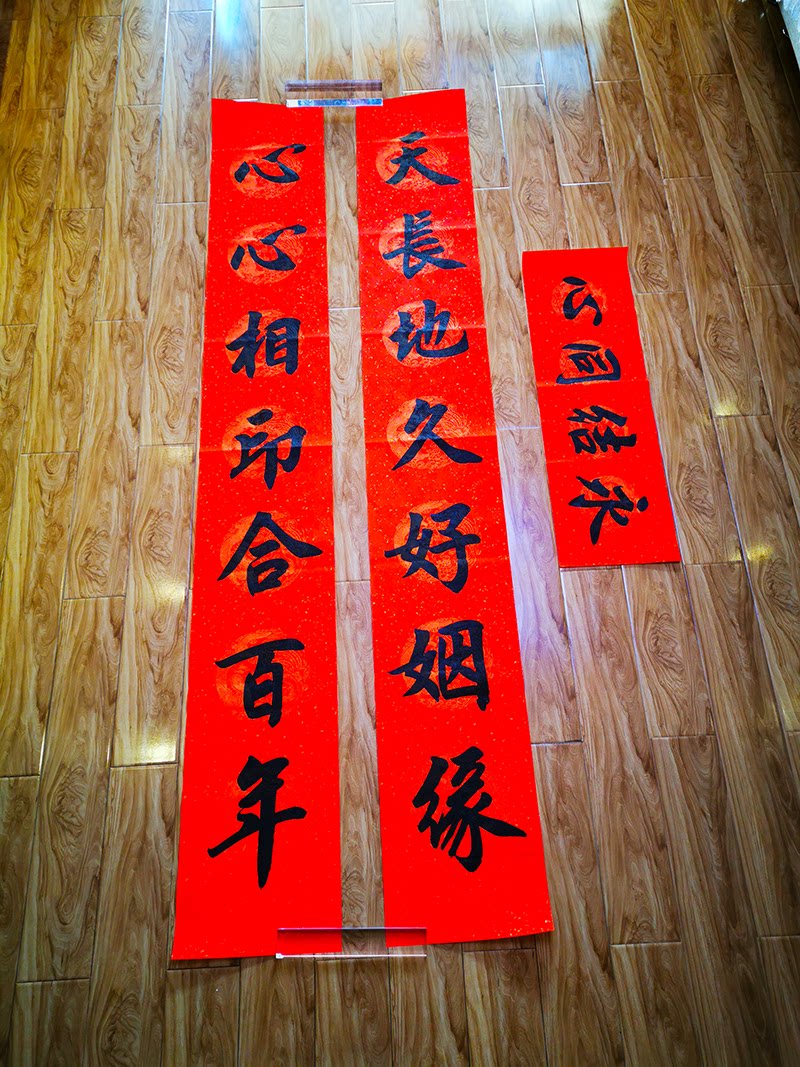 天長地久好姻缘
心心相印合百年
永结同心